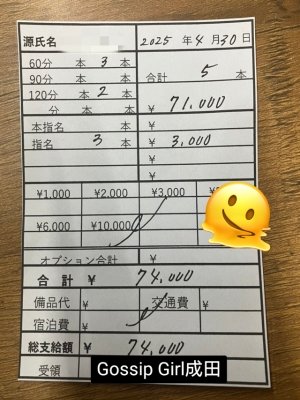 源氏名 2025 年 4 月 30 日
60分 本 3 本
90分 本 本 合計 5 本
120分 本 2 本
分 本 本 ¥ 71,000
本指名 ¥
指名 3 本 ¥ 3,000
¥
¥
¥1,000 ¥2,000 ¥3,000
¥6,000 ¥10,000
オプション合計 ¥
合計 ¥ 74,000
備品代 ¥ 交通費 ¥
宿泊費 ¥
総支給額 ¥ 74,000
受領
Gossip Girl成田